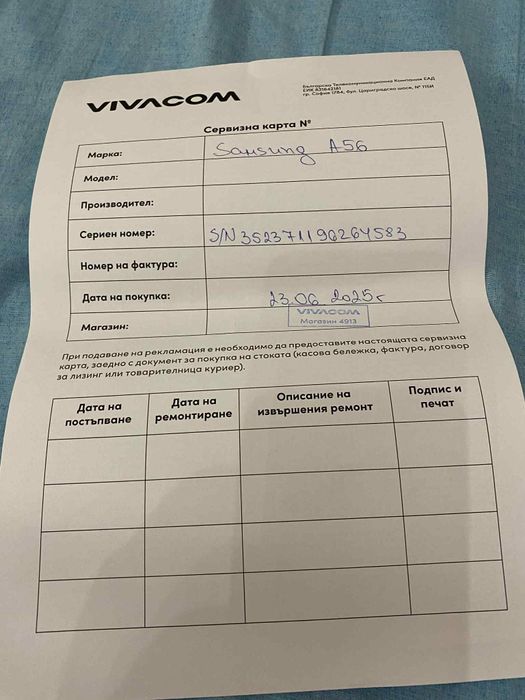 VIVACOM
Българска Телекомуникационна Компания ЕАД
ЕИК 831642181
гр. София 1784, бул. Цариградско шосе, № 115И
Сервизна карта №
Марка: Samsung A56
Модел:
Производител:
Сериен номер: S/N 352371196264583
Номер на фактура:
Дата на покупка: 23.06 2025г
Магазин: VIVACOM
Магазин 4913
При подаване на рекламация е необходимо да предоставите настоящата сервизна
карта, заедно с документ за покупка на стоката (касова бележка, фактура, договор
за лизинг или товарителница куриер).
Дата на постъпване Дата на ремонтиране Описание на извършения ремонт Подпис и печат